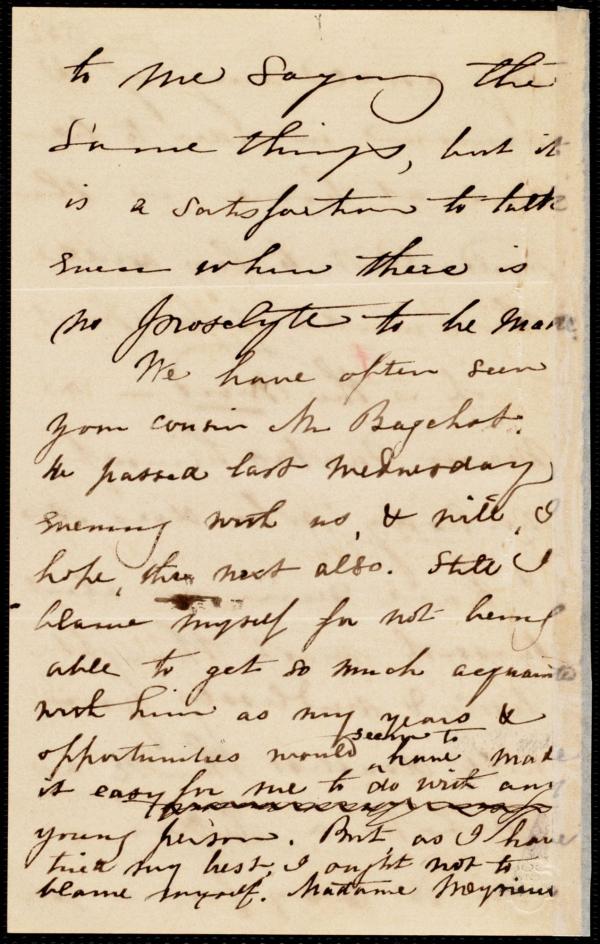 to me saying the
same things, but it
is a satisfaction to talk
even when there is
no proselyte to be made
We have often seen
your cousin Mr Bagehot.
He passed last Wednesday
evening with us, & will, I
hope, the next also. Still I
blame myself for not being
able to get so much acquain
with him as my years &
opportunities would seem to have made
it easy for me to do with any
young person. But, as I have
tried my best, I ought not to
blame myself. Madame